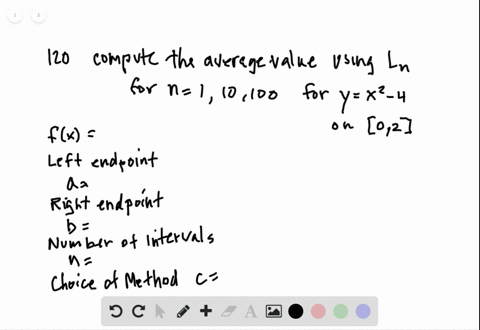 120 compute the average value using Ln
for n=1, 10, 100 for y=x²-4
on [0,2]
f(x) =
Left endpoint
a=
Right endpoint
b=
Number of Intervals
n=
Choice of Method c=
A